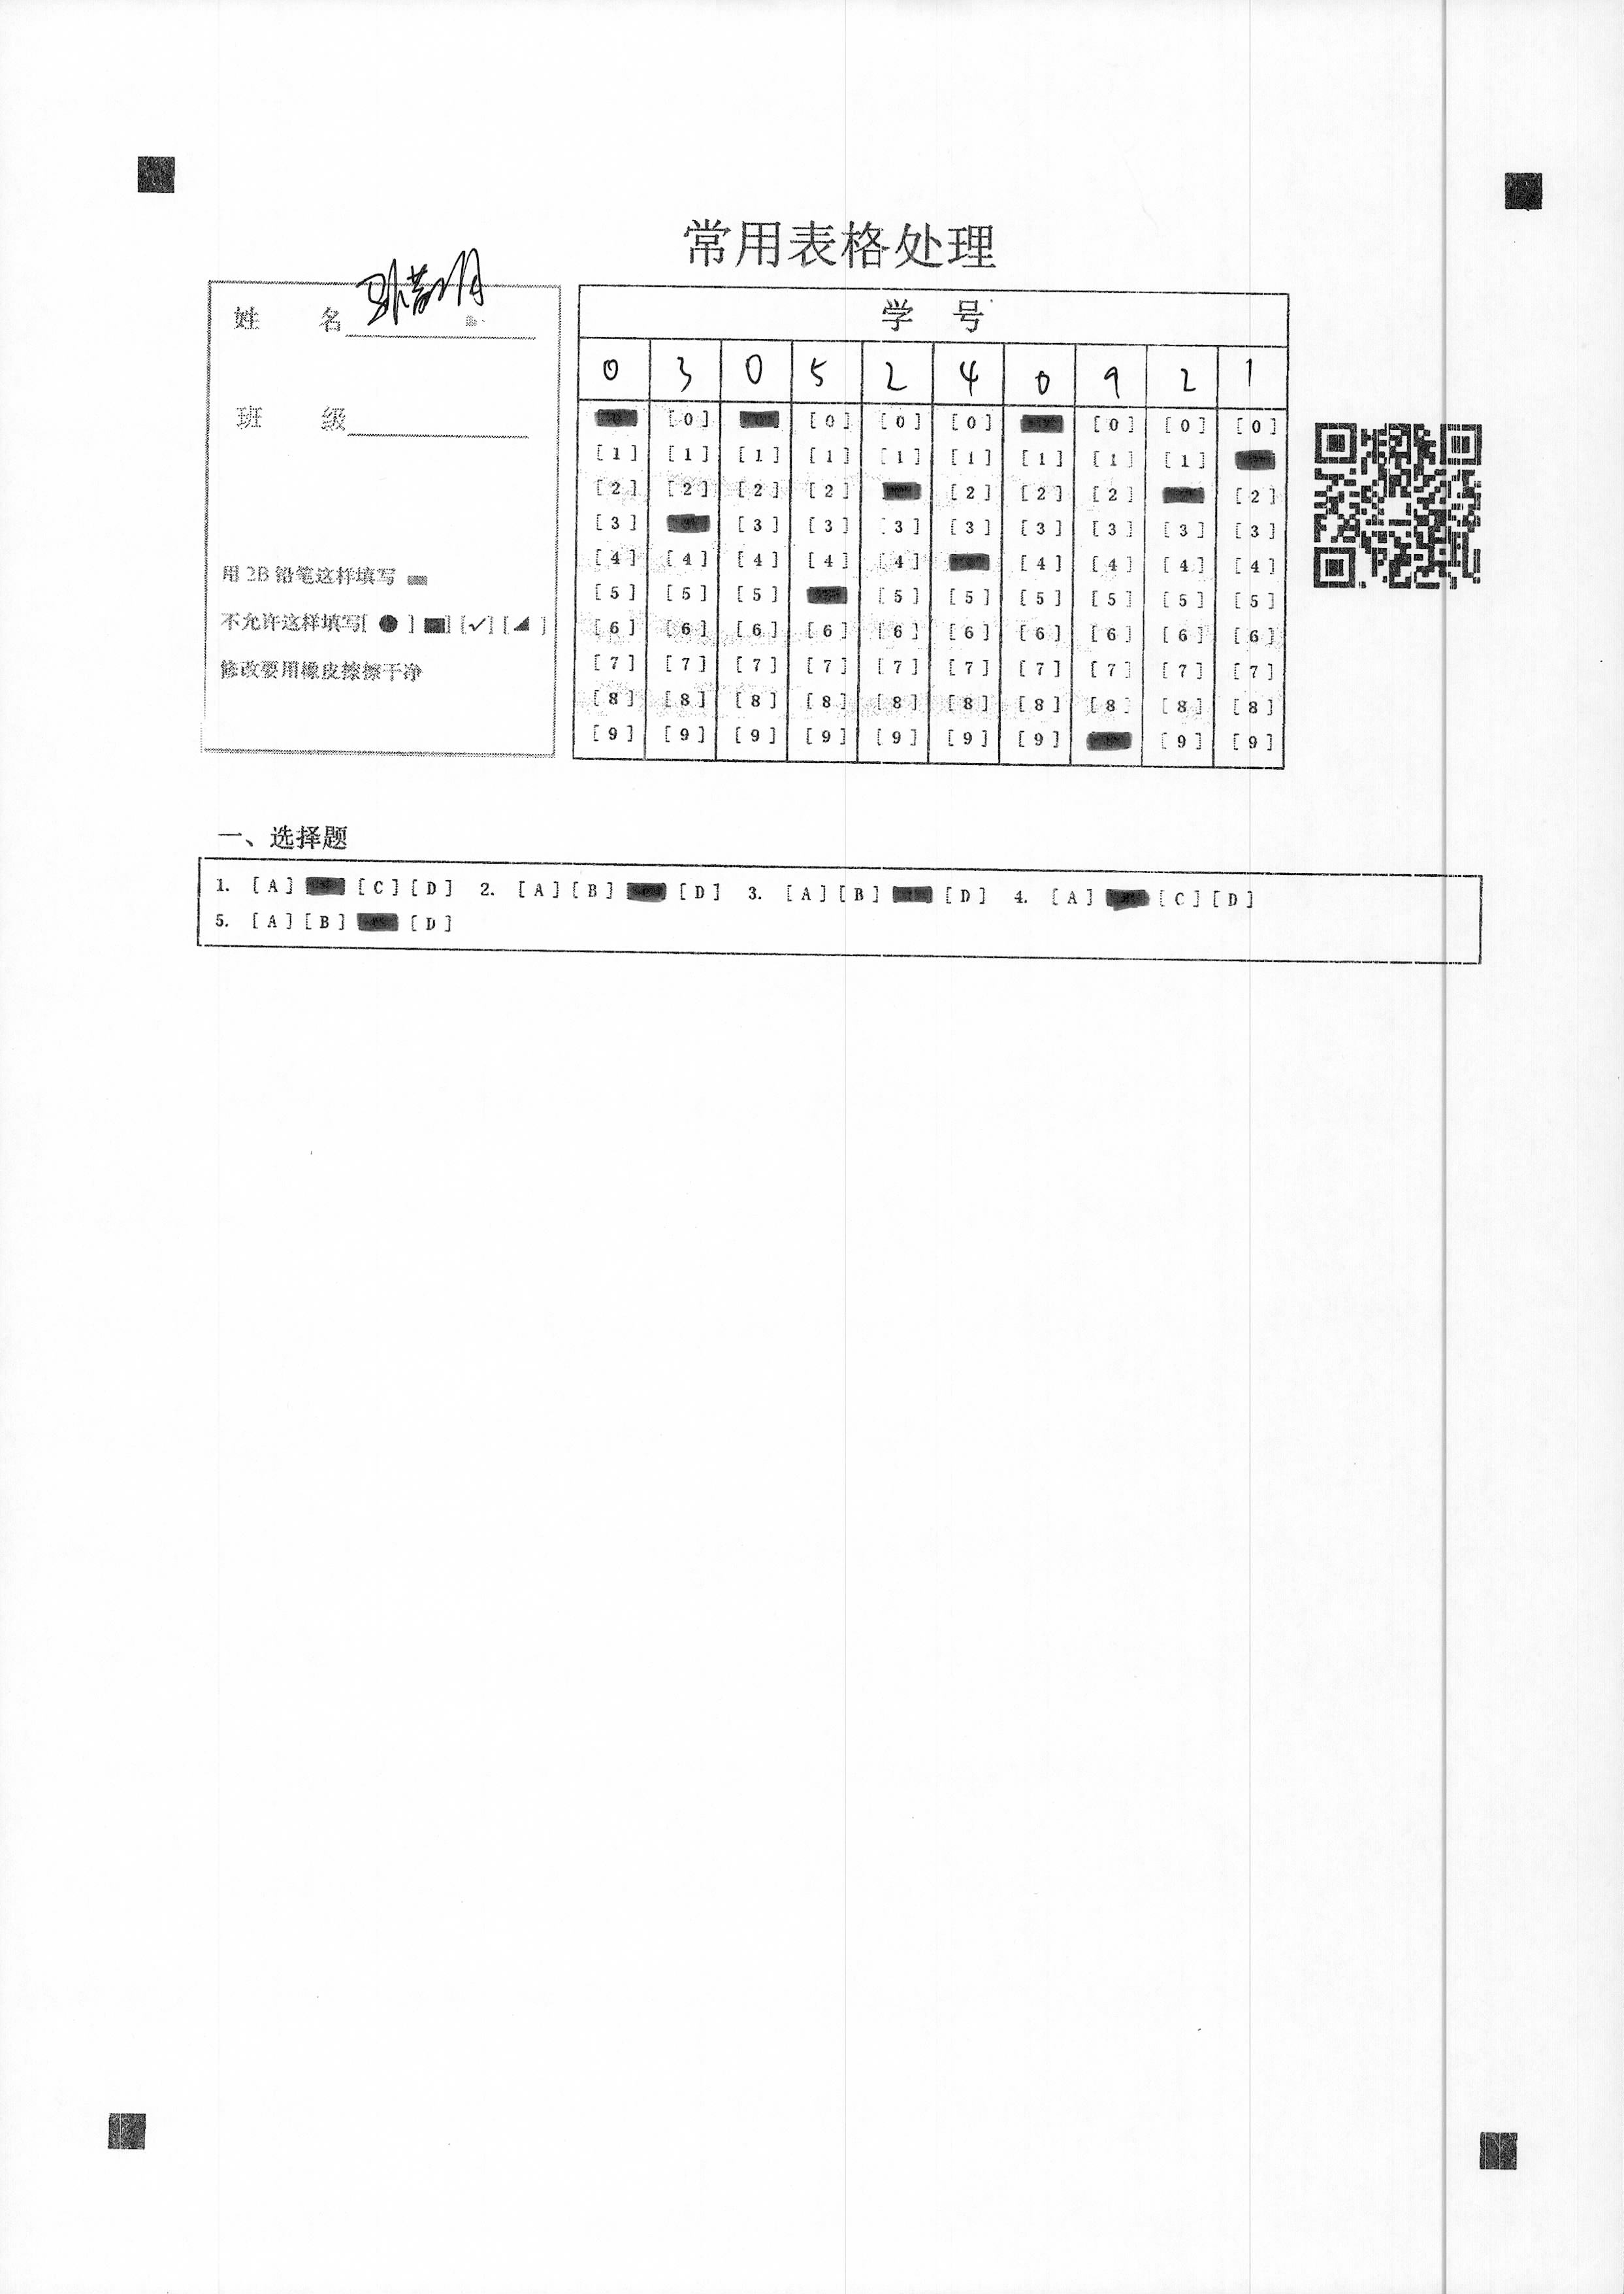 常用表格处理
姓 名
班 级
用 2B 铅笔这样填写
不允许这样填写[ ● ] [■] [✓] [◢ ]
修改要用橡皮擦擦干净
学 号
0 3 0 5 2 4 0 9 2 1
[0] [0] [0] [0] [0] [0] [0]
[1] [1] [1] [1] [1] [1] [1] [1] [1]
[2] [2] [2] [2] [2] [2] [2] [2]
[3] [3] [3] [3] [3] [3] [3] [3] [3]
[4] [4] [4] [4] [4] [4] [4] [4] [4]
[5] [5] [5] [5] [5] [5] [5] [5] [5]
[6] [6] [6] [6] [6] [6] [6] [6] [6] [6]
[7] [7] [7] [7] [7] [7] [7] [7] [7] [7]
[8] [8] [8] [8] [8] [8] [8] [8] [8] [8]
[9] [9] [9] [9] [9] [9] [9] [9] [9]
一、选择题
1. [A] [C] [D] 2. [A] [B] [D] 3. [A] [B] [D] 4. [A] [C] [D]
5. [A] [B] [D]